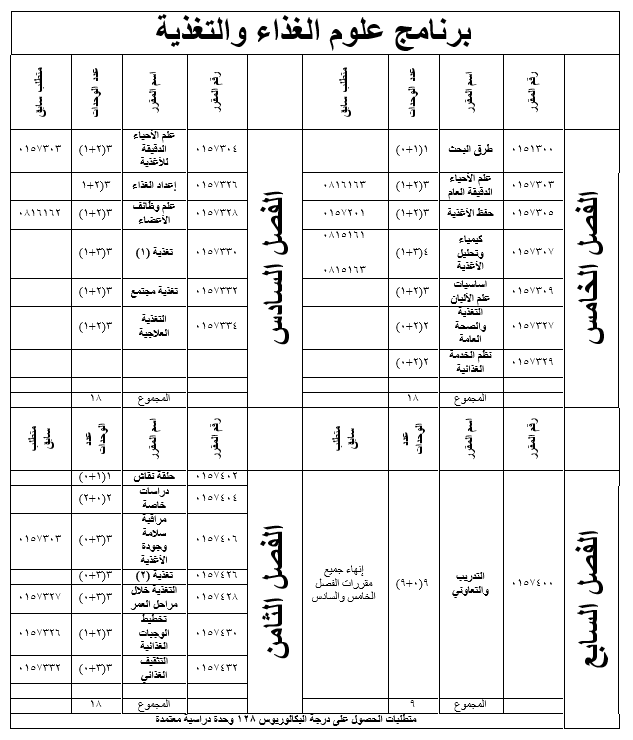 برنامج علوم الغذاء والتغذية
الفصل الخامس
رقم المقرر
اسم المقرر
عدد الوحدات
متطلب سابق
٠١٥١٣٠٠
طرق البحث
١(١+٠)
٠١٥٧٣٠٣
علم الأحياء
الدقيقة العام
٣(٢+١)
٠٨١٦١٦٣
٠١٥٧٣٠٥
حفظ الأغذية
٣(٢+١)
٠١٥٧٢٠١
٠١٥٧٣٠٧
كيمياء
وتحليل
الأغذية
٤(٣+١)
٠٨١٥١٦١
٠٨١٥١٦٣
٠١٥٧٣٠٩
اساسيات
علم الألبان
٣(٢+١)
٠١٥٧٣٢٧
التغذية
والصحة
العامة
٢(٢+٠)
٠١٥٧٣٢٩
نظم الخدمة
الغذائية
٢(٢+٠)
المجموع
١٨
الفصل السادس
رقم المقرر
اسم المقرر
عدد الوحدات
متطلب سابق
٠١٥٧٣٠٤
علم الأحياء
الدقيقة
للأغذية
٣(٢+١)
٠١٥٧٣٠٣
٠١٥٧٣٢٦
إعداد الغذاء
٣(٢+١
٠١٥٧٣٢٨
علم وظائف
الأعضاء
٣(٢+١)
٠٨١٦١٦٢
٠١٥٧٣٣٠
تغذية (١)
٣(٣+١)
٠١٥٧٣٣٢
تغذية مجتمع
٣(٢+١)
٠١٥٧٣٣٤
التغذية
العلاجية
٣(٢+١)
المجموع
١٨
الفصل السابع
رقم المقرر
اسم المقرر
عدد
الوحدات
متطلب
سابق
٠١٥٧٤٠٠
التدريب
والتعاوني
٩(٠+٩)
إنهاء جميع
مقررات الفصل
الخامس والسادس
المجموع
٩
الفصل الثامن
رقم المقرر
اسم المقرر
عدد
الوحدات
متطلب
سابق
٠١٥٧٤٠٢
حلقة نقاش
١(١+٠)
٠١٥٧٤٠٤
دراسات
خاصة
٢(٠+٢)
٠١٥٧٤٠٦
مراقبة
سلامة
وجودة
الأغذية
٣(٣+٠)
٠١٥٧٣٠٣
٠١٥٧٤٢٦
تغذية (٢)
٣(٣+٠)
٠١٥٧٤٢٨
التغذية خلال
مراحل العمر
٣(٣+٠)
٠١٥٧٣٢٧
٠١٥٧٤٣٠
تخطيط
الوجبات
الغذائية
٣(٢+١)
٠١٥٧٣٢٦
٠١٥٧٤٣٢
التثقيف
الغذائي
٣(٣+٠)
٠١٥٧٣٣٢
المجموع
١٨
متطلبات الحصول على درجة البكالوريوس ١٢٨ وحدة دراسية معتمدة